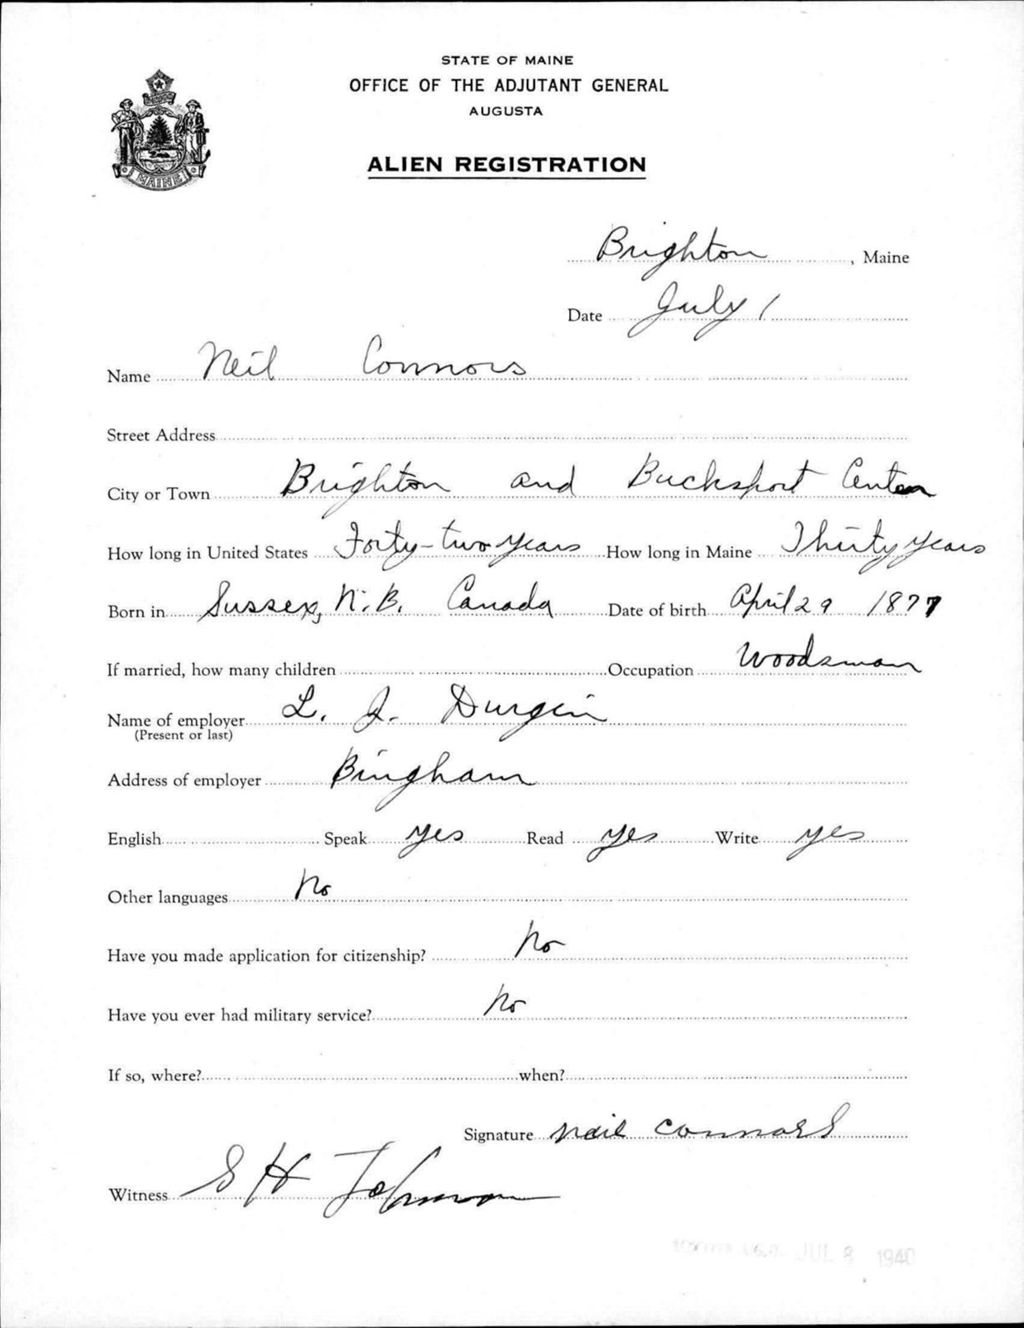 STATE OF MAINE
OFFICE OF THE ADJUTANT GENERAL
AUGUSTA
ALIEN REGISTRATION
MAINE
Brighton, Maine
Date July 1
Name Neil Connors
Street Address
City or Town Brighton and Bucksport Center
How long in United States Forty-two years How long in Maine Thirty years
Born in Sussex, N.B. Canada Date of birth April 29 1877
If married, how many children Occupation Woodsman
Name of employer L. J. Durgin
(Present or last)
Address of employer Bingham
English Speak yes Read yes Write yes
Other languages No
Have you made application for citizenship? No
Have you ever had military service? No
If so, where? when?
Signature Neil Connors
Witness S H Johnson
JUL 8 1940